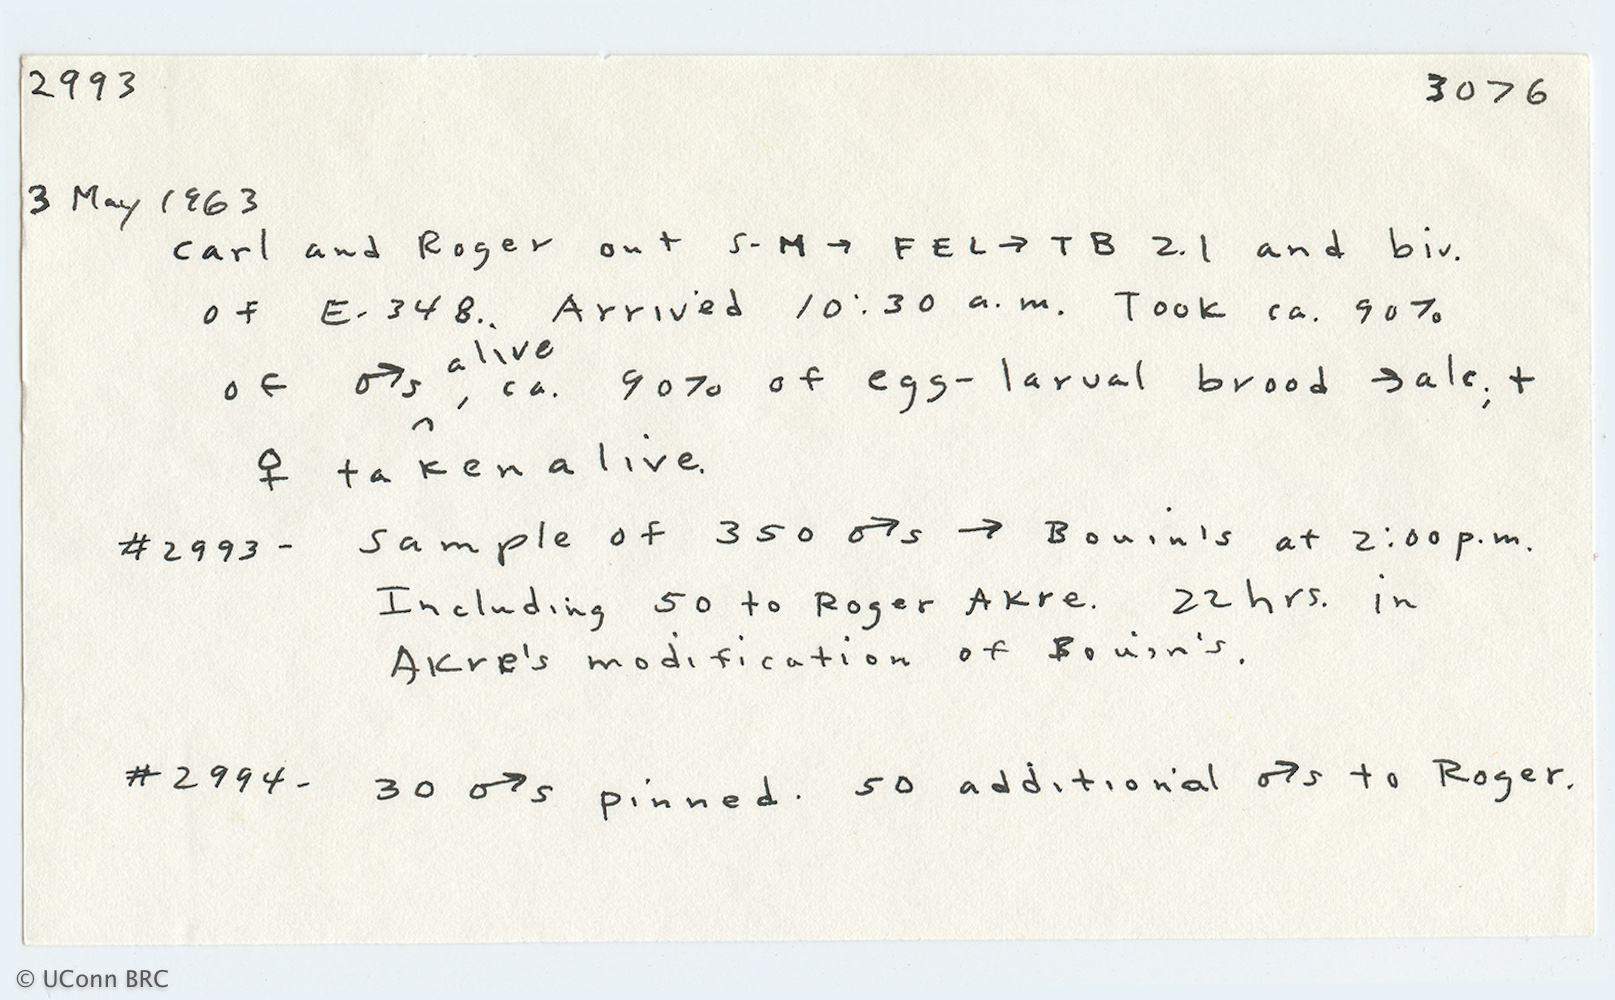 2993 3076
3 May 1963
Carl and Roger out S-M → FEL → TB 2.1 and biv.
of E-348. Arrived 10:30 a.m. Took ca. 90%
of ♂s alive, ca. 90% of egg-larval brood → alc; +
♀ taken alive.
#2993 - Sample of 350 ♂s → Bouin's at 2:00 p.m.
Including 50 to Roger Akre. 22 hrs. in
Akre's modification of Bouin's.
#2994 - 30 ♂s pinned. 50 additional ♂s to Roger.
© UConn BRC